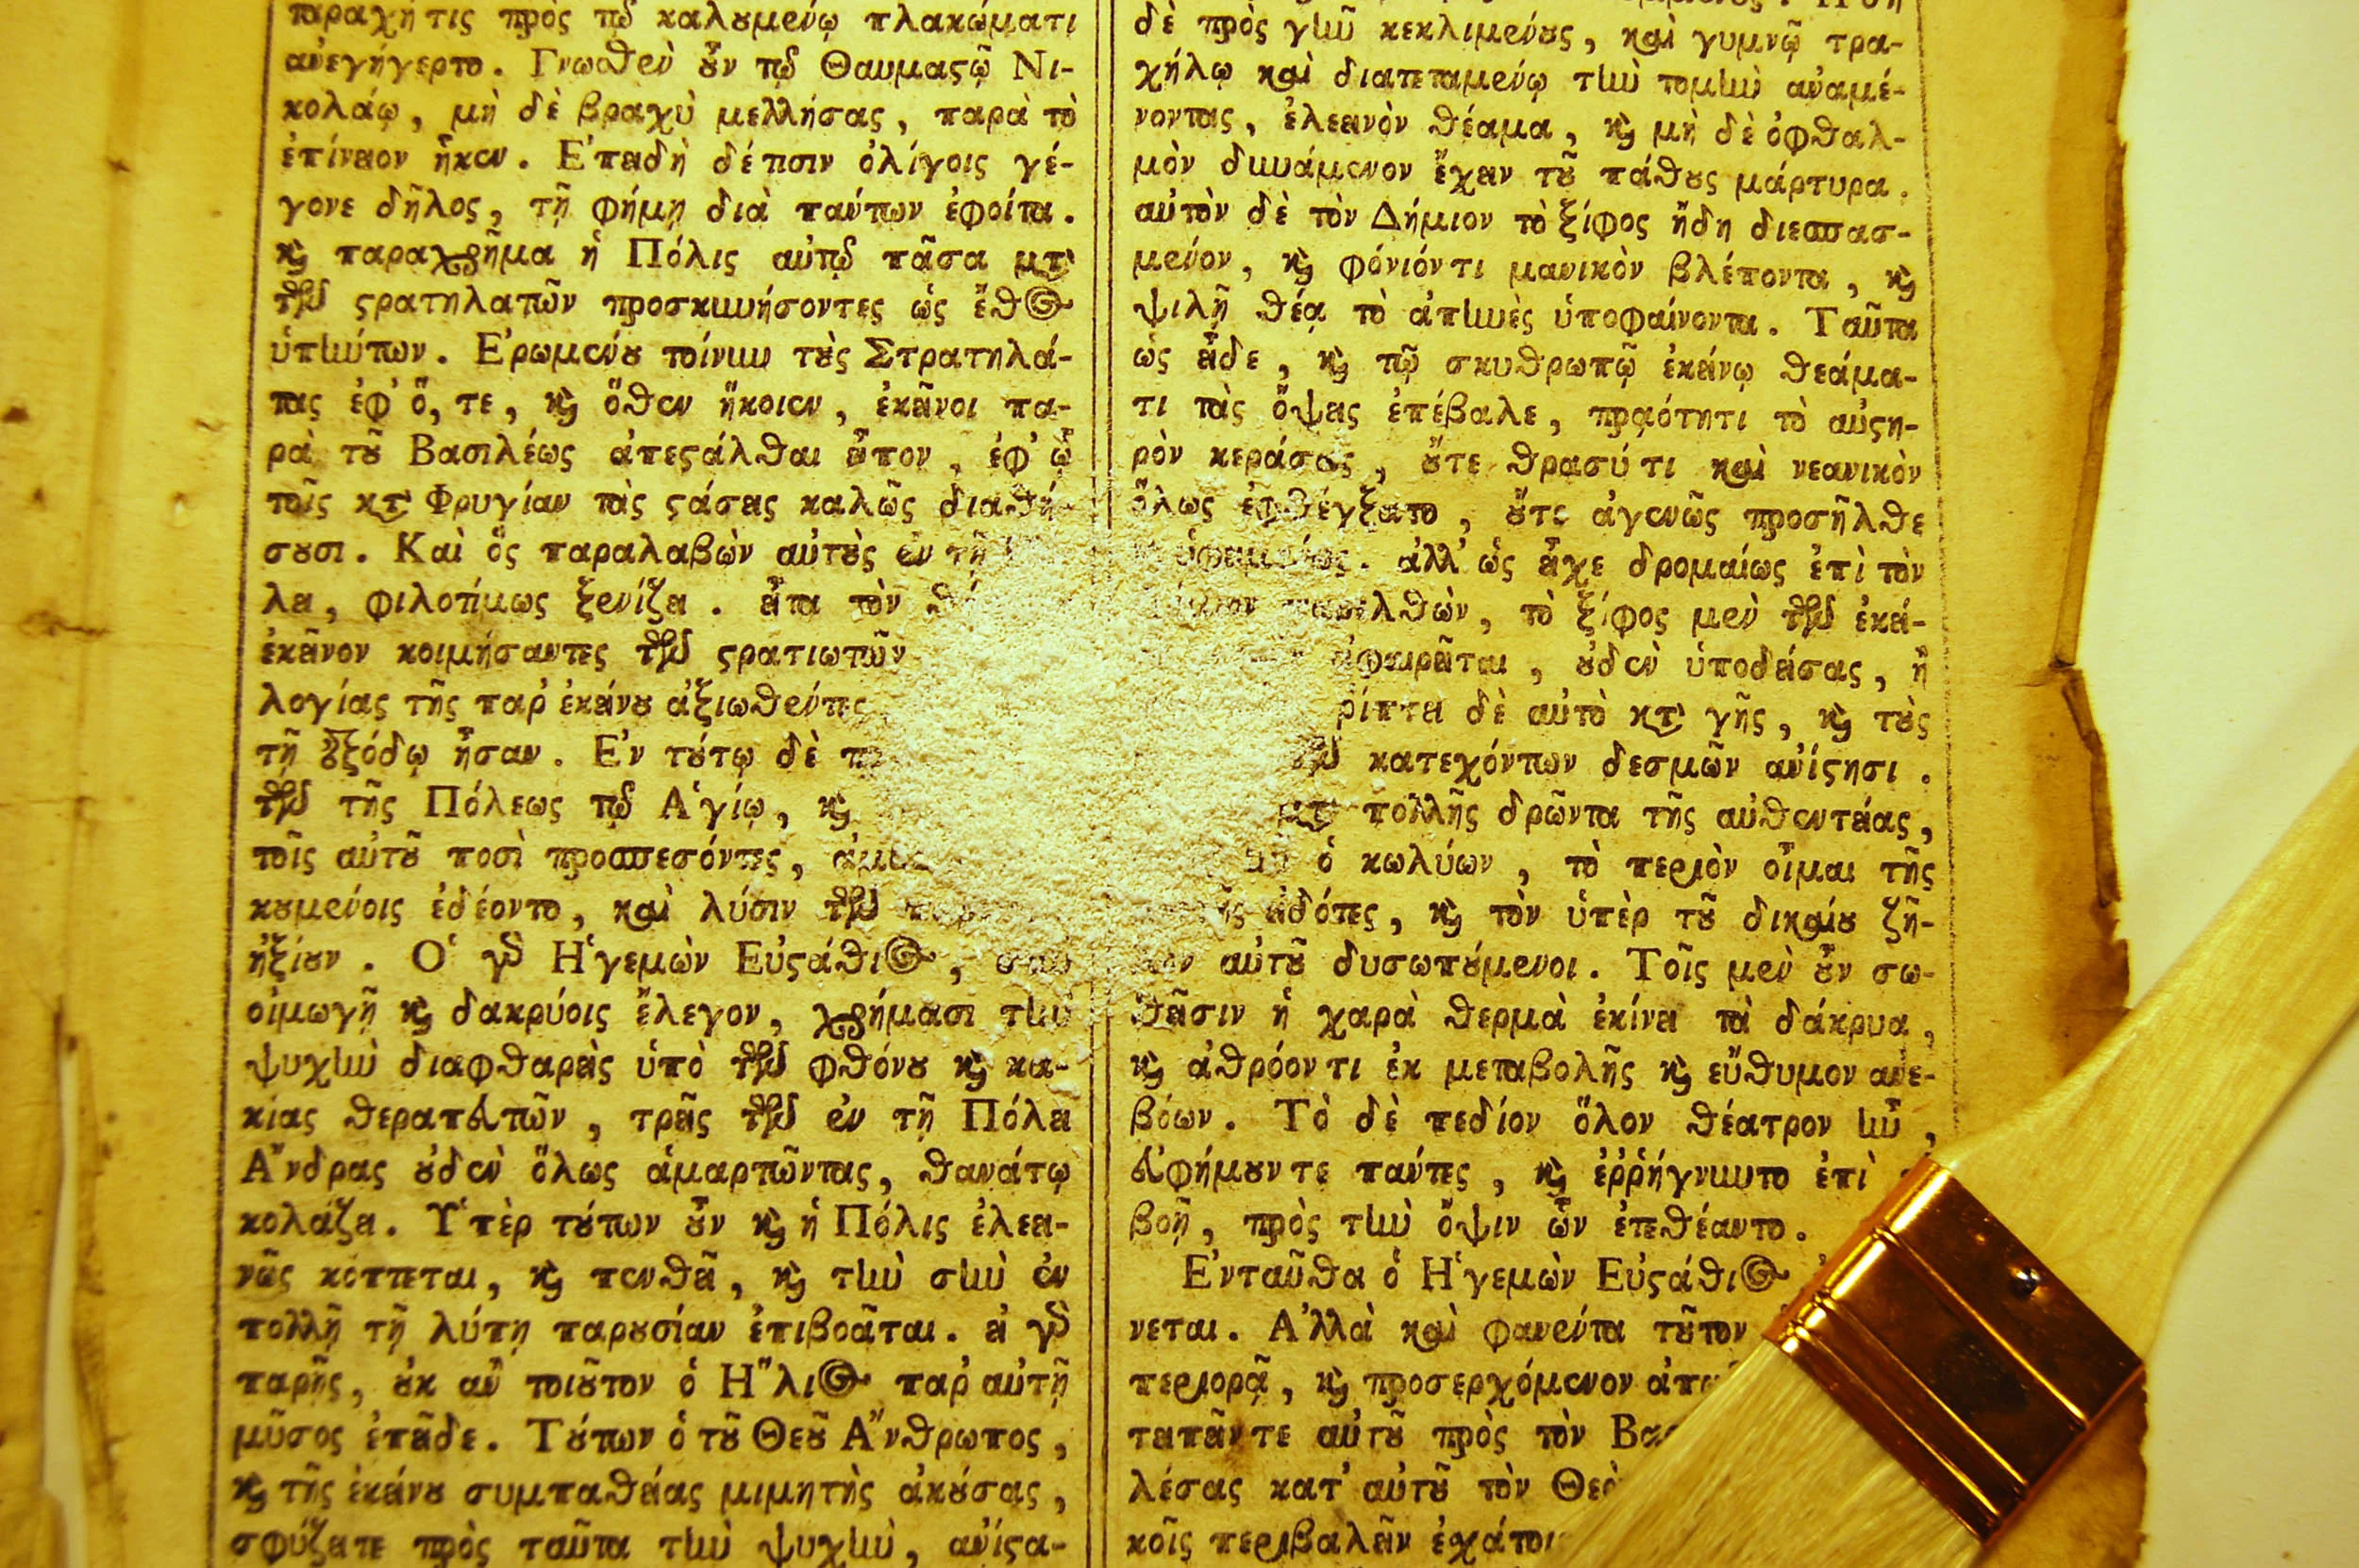 ταραχή τις πρὸς τῷ καλουμένῳ πλακώματι
ἀνεγήγερτο. Γνωσθὲν οὖν τῷ Θαυμαστῷ Νι-
κολάῳ, μὴ δὲ βραχὺ μελλήσας, παρὰ τὸ
ἐπίνειον ἧκεν. Ἐπειδὴ δέ τισιν ὀλίγοις γέ-
γονε δῆλος, τῇ φήμῃ διὰ πάντων ἐφοίτα.
καὶ παραχρῆμα ἡ Πόλις αὐτῷ πᾶσα μετὰ
τῶν στρατηλατῶν προσκυνήσοντες ὡς ἔθος
ὑπήντων. Ἐρωμένου τοίνυν τοὺς Στρατηλά-
τας ἐφ' ὅ, τε, καὶ ὅθεν ἥκοιεν, ἐκεῖνοι πα-
ρὰ τοῦ Βασιλέως ἀπεστάλθαι εἶπον, ἐφ' ᾧ
τοῖς κατὰ Φρυγίαν τὰς στάσεις καλῶς διαθή-
σουσι. Καὶ ὃς παραλαβὼν αὐτοὺς ἐν τῇ
λει, φιλοτίμως ξενίζει. εἶτα τὸν
ἐκεῖνον κοιμήσαντες τῶν στρατιωτῶν
λογίας τῆς παρ' ἐκείνου ἀξιωθέντες
τῇ ἐξόδῳ ἦσαν. Ἐν τούτῳ δὲ
τῶν τῆς Πόλεως τῷ Ἁγίῳ, καὶ
τοῖς αὐτοῦ ποσὶ προσπεσόντες,
κουμένοις ἐδέοντο, καὶ λύσιν τῶν
ἠξίουν. Ὁ γὰρ Ἡγεμὼν Εὐστάθιος, σὺν
οἰμωγῇ καὶ δακρύοις ἔλεγον, χρήμασι τὴν
ψυχὴν διαφθαρεὶς ὑπὸ τῶν φθόνου καὶ κα-
κίας θεραπευτῶν, τρεῖς τῶν ἐν τῇ Πόλει
Ἄνδρας οὐδὲν ὅλως ἁμαρτῶντας, θανάτῳ
κολάζει. Ὑπὲρ τούτων οὖν καὶ ἡ Πόλις ἐλεει-
νῶς κόπτεται, καὶ πενθεῖ, καὶ τὴν σὴν ἐν
πολλῇ τῇ λύπῃ παρουσίαν ἐπιβοᾶται. εἰ γὰρ
παρῆς, οὐκ ἂν τοιοῦτον ὁ Ἥλιος παρ' αὐτῇ
μῦσος ἐπεῖδε. Τούτων ὁ τοῦ Θεοῦ Ἄνθρωπος,
καὶ τῆς ἐκείνου συμπαθείας μιμητὴς ἀκούσας,
σφύζει τε πρὸς ταῦτα τὴν ψυχὴν, ἀνίστα-
δὲ πρὸς γῆν κεκλιμένους, καὶ γυμνῷ τρα-
χήλῳ καὶ διατεταμένῳ τὴν τομὴν ἀναμέ-
νοντας, ἐλεεινὸν θέαμα, καὶ μὴ δὲ ὀφθαλ-
μὸν δυνάμενον ἔχειν τοῦ πάθους μάρτυρα.
αὐτὸν δὲ τὸν Δήμιον τὸ ξίφος ἤδη διεσπασ-
μένον, καὶ φόνιόν τι μανικὸν βλέποντα, καὶ
ψιλῇ θέᾳ τὸ ἀπηνὲς ὑποφαίνοντα. Ταῦτα
ὡς εἶδε, καὶ τῷ σκυθρωπῷ ἐκείνῳ θεάμα-
τι τὰς ὄψεις ἐπέβαλε, πρᾳότητι τὸ αὐστη-
ρὸν κεράσας, οὔτε θρασύ τι καὶ νεανικὸν
ὅλως ἐφθέγξατο, οὔτε ἀγενῶς προσῆλθε
ὑφειμένως. ἀλλ' ὡς εἶχε δρομαίως ἐπὶ τὸν
παρελθὼν, τὸ ξίφος μὲν τῶν ἐκεί-
ἀφαιρεῖται, οὐδὲν ὑποδείσας, ἢ
ῥίπτει δὲ αὐτὸ κατὰ γῆς, καὶ τοὺς
τῶν κατεχόντων δεσμῶν ἀνίησι.
μετὰ πολλῆς δρῶντα τῆς αὐθεντείας,
ὁ κωλύων, τὸ περιὸν οἶμαι τῆς
εἰδότες, καὶ τὸν ὑπὲρ τοῦ δικαίου ζῆ-
λον αὐτοῦ δυσωπούμενοι. Τοῖς μὲν οὖν σω-
θεῖσιν ἡ χαρὰ θερμὰ ἐκίνει τὰ δάκρυα,
καὶ ἀθρόον τι ἐκ μεταβολῆς καὶ εὔθυμον ἀνε-
βόων. Τὸ δὲ πεδίον ὅλον θέατρον ἦν,
εὐφήμουν τε πάντες, καὶ ἐῤῥήγνυντο ἐπὶ
βοῇ, πρὸς τὴν ὄψιν ὧν ἐτεθέαντο.
Ἐνταῦθα ὁ Ἡγεμὼν Εὐστάθιος
νεται. Ἀλλὰ καὶ φανέντα τοῦτον
περιορᾷ, καὶ προσερχόμενον
τειπεῖν τε αὐτοῦ πρὸς τὸν
λέσας κατ' αὐτοῦ τὸν
κοῖς περιβαλεῖν